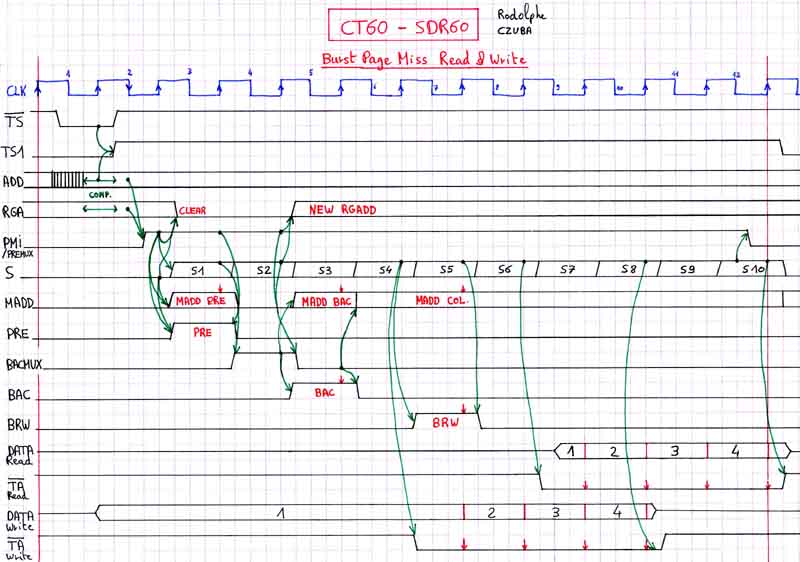 CT60 - SDR60
Rodolphe
CZUBA
Burst Page Miss Read & Write
CLK 1 2 3 4 5 6 7 8 9 10 11 12
TS
TS1
ADD
COMP.
RGA CLEAR NEW RGADD
PMi
/PREMUX
S S1 S2 S3 S4 S5 S6 S7 S8 S9 S10
MADD MADD PRE MADD BAC MADD COL.
PRE PRE
BACMUX
BAC BAC
BRW BRW
DATA 1 2 3 4
Read
TA
Read
DATA 1 2 3 4
Write
TA
Write